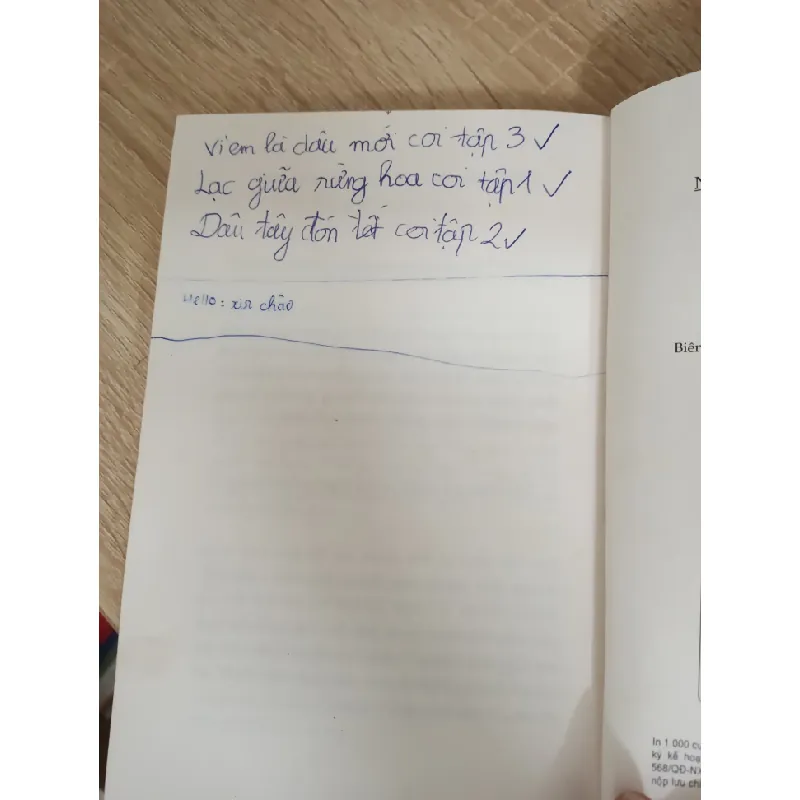 Vì em là dâu mới coi tập 3 ✓
Lạc giữa rừng hoa coi tập 1 ✓
Dâu tây đón tết coi tập 2 ✓
Hello: xin chào
N
Biên
In 1.000 cu
ký kế hoạ
568/QĐ-NX
nộp lưu chi